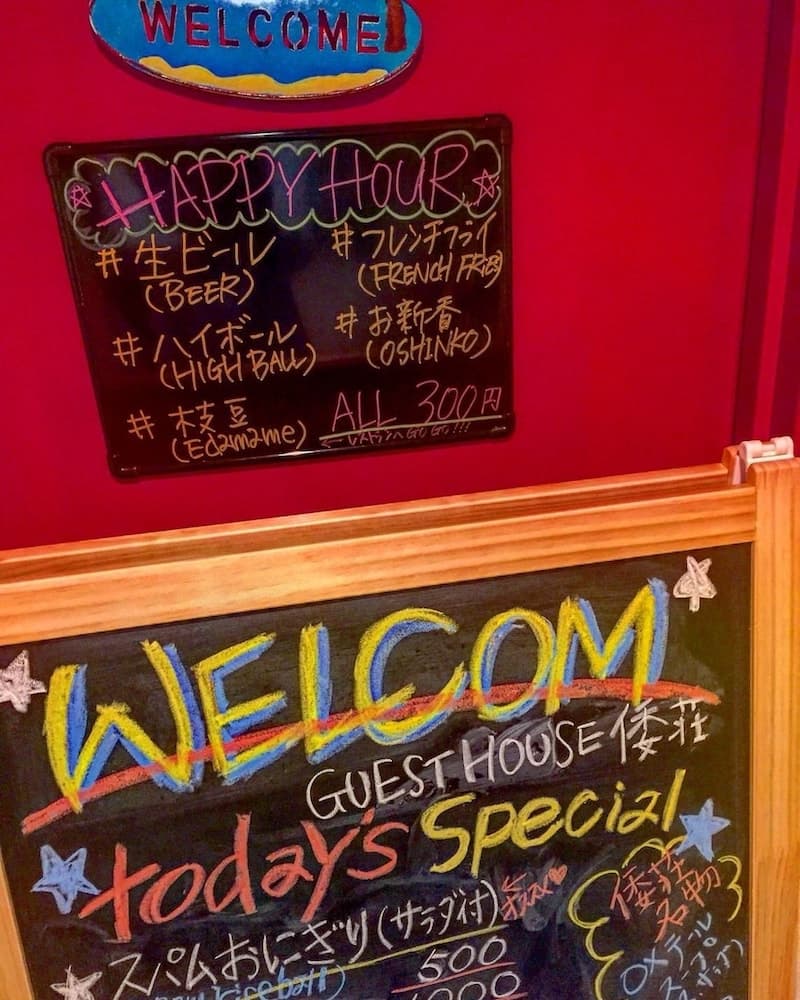 WELCOME
HAPPY HOUR
# 生ビール
(BEER)
# フレンチフライ
(FRENCH FRIES)
# ハイボール
(HIGH BALL)
# お新香
(OSHINKO)
# 枝豆
(Edamame)
ALL 300円
← レストランへ GO GO!!!
WELCOM
GUEST HOUSE 倭荘
today's Special
スパムおにぎり(サラダ付)
500
rice ball)
倭荘
名物
OXテール
スープ